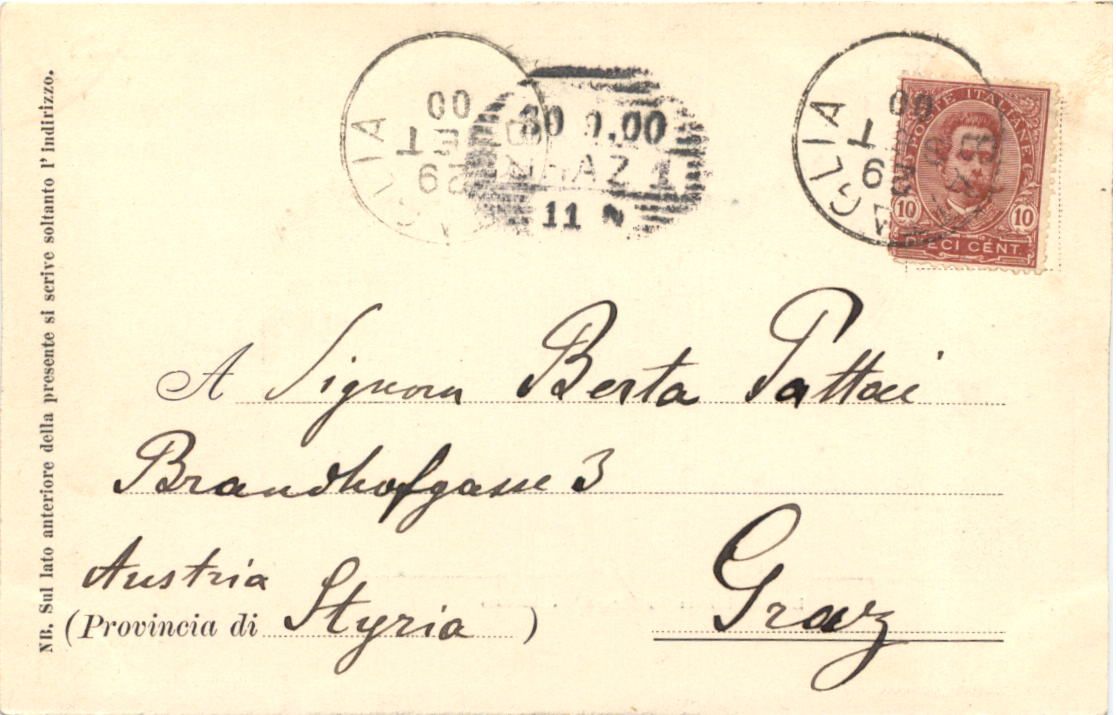 NB. Sul lato anteriore della presente si scrive soltanto l' indirizzo.
00
SET
29
AGLIA
30 9.00
GRAZ 1
11
00
29
AGLIA
POSTE ITALIANE
10 10
ECI CENT.
A Signora Berta Pattai
Brandhofgasse 3
Austria
(Provincia di Styria)
Graz